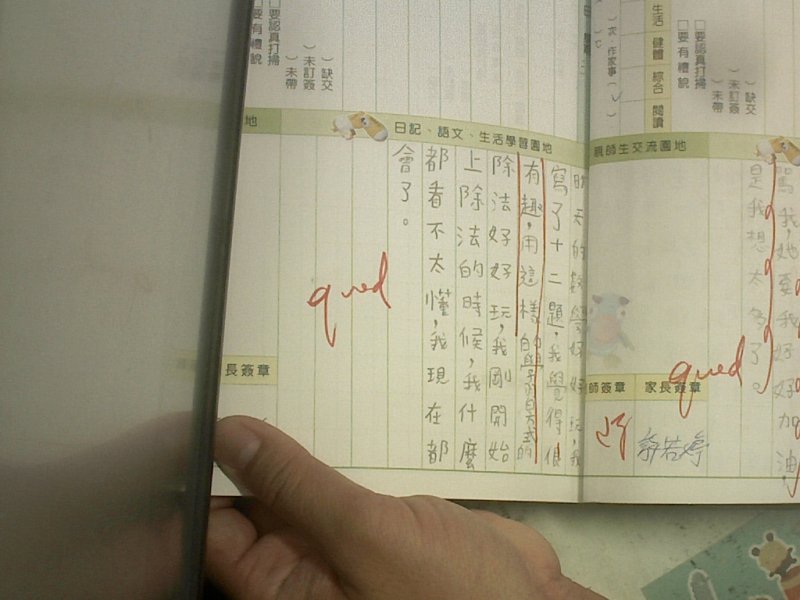 生活
健體
綜合
閱讀
次 作家事（✓）
□要認真打掃
□要有禮貌
）缺交
）未訂簽
）未帶
親師生交流園地
罵我，她要我好好加油，
是我想太多了。
qued
師簽章
家長簽章
□要認真打掃
□要有禮貌
）缺交
）未訂簽
）未帶
日記、語文、生活學習園地
天的數學好好玩，我
寫了十二題，我覺得很
有趣，用這樣的學習方式的
除法好好玩，我剛開始
上除法的時候，我什麼
都看不太懂，我現在都
會了。
qued
地
長簽章